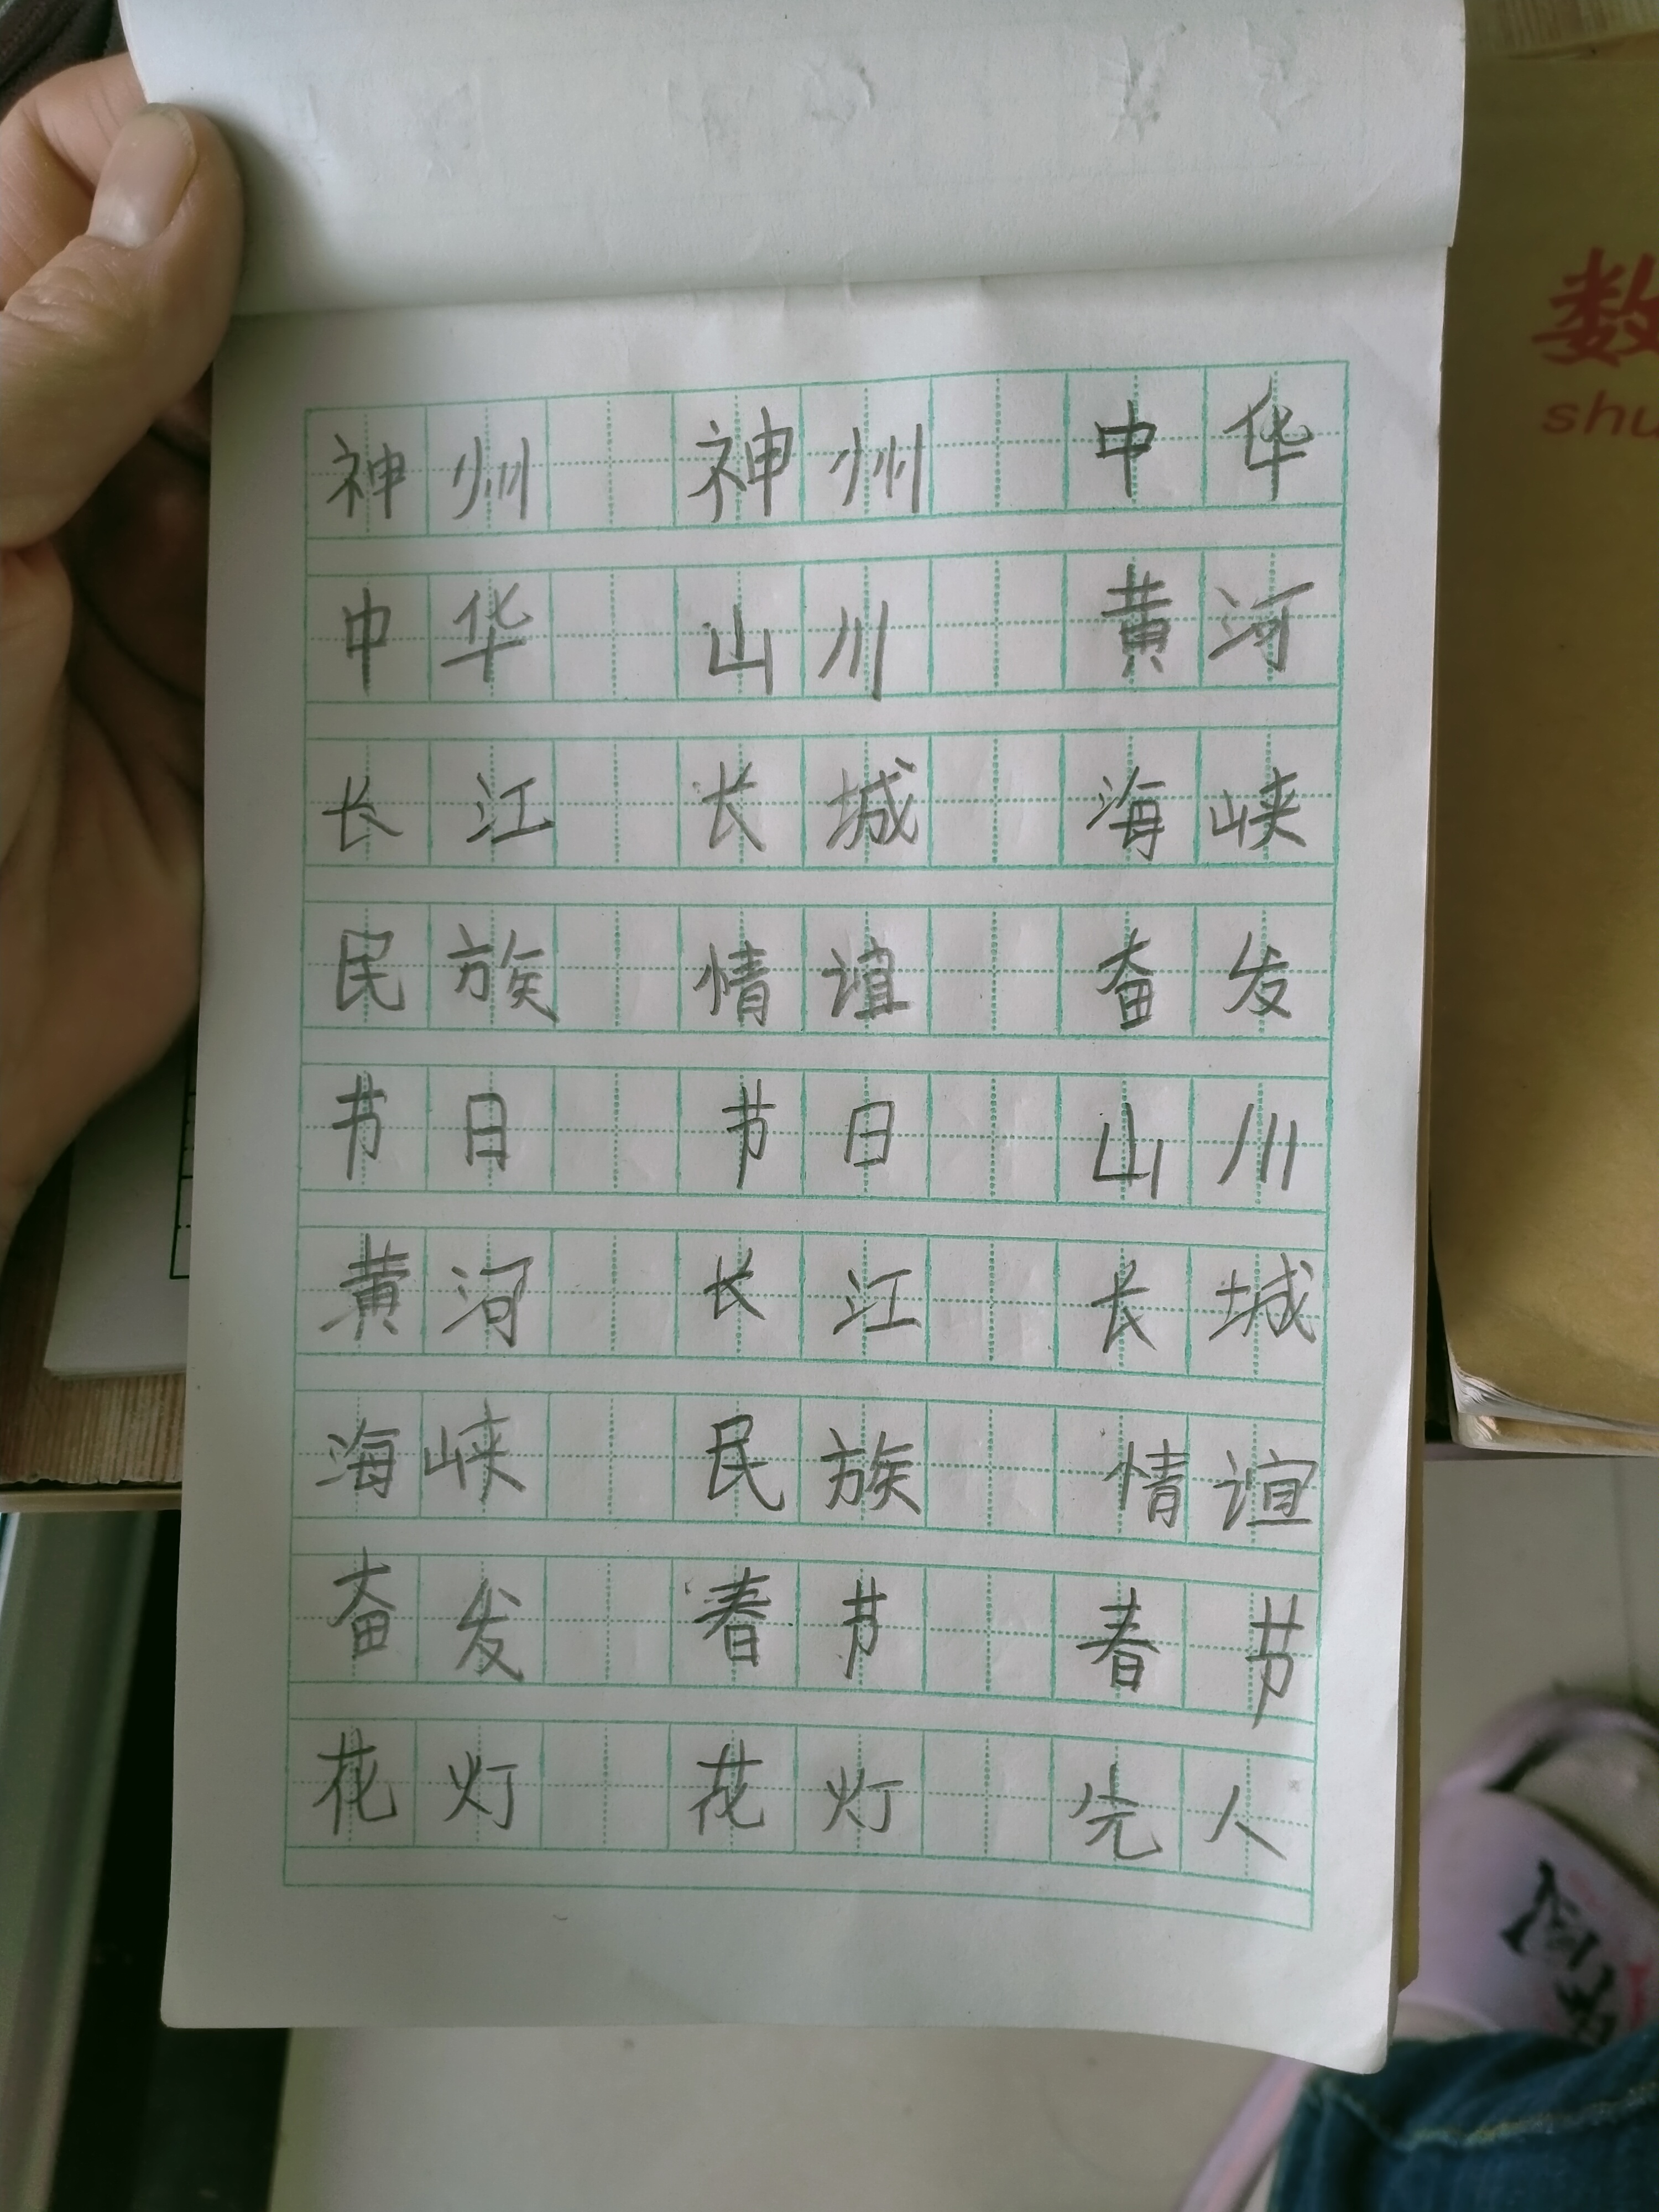 神州 神州 中华
中华 山川 黄河
长江 长城 海峡
民族 情谊 奋发
节日 节日 山川
黄河 长江 长城
海峡 民族 情谊
奋发 春节 春节
花灯 花灯 先人
数
shu